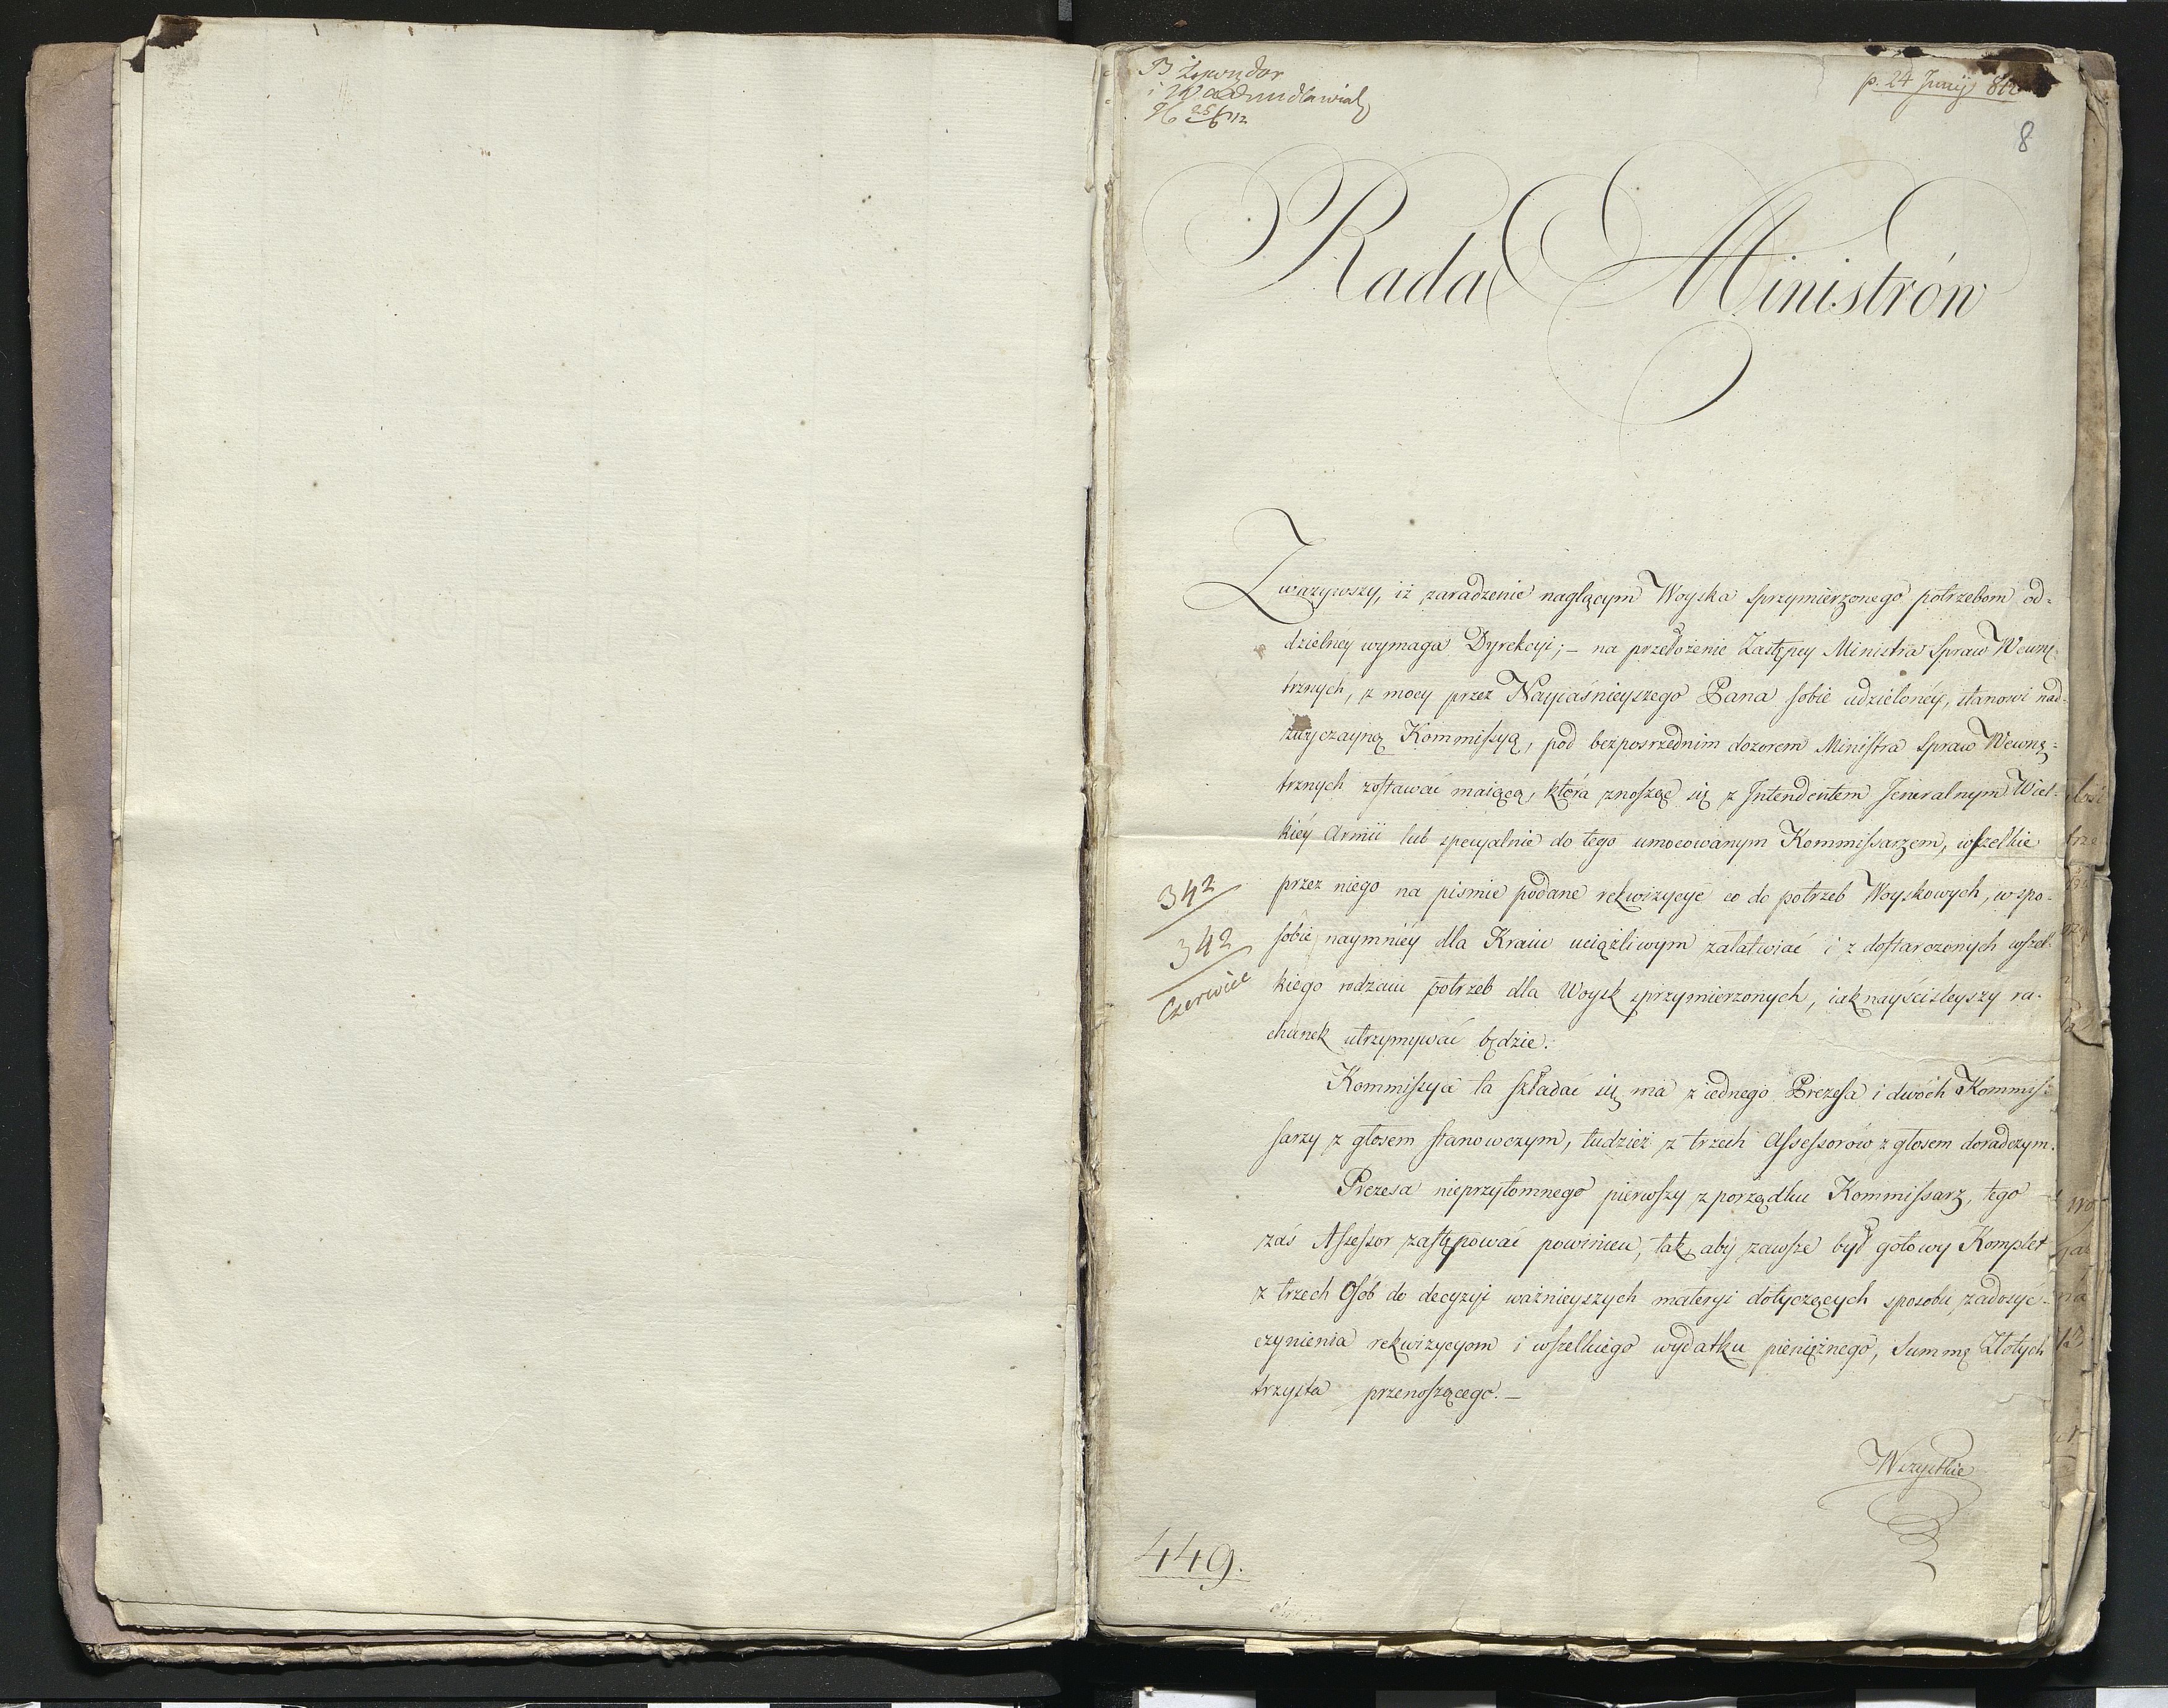 p. 24 Junij 812
8
Rada Ministrów
Zważywszy, iż zaradzenie naglącym Woyska sprzymierzonego potrzebom od-
dzielnéy wymaga Dyrekcyi; – na przełożenie Zastępcy Ministra Spraw Wewnę-
trznych, z mocy przez Nayiaśnieyszego Pana sobie udzielonéy, stanowi nad-
zwyczayną Kommissyą, pod bezposrzednim dozorem Ministra Spraw Wewnę-
trznych zostawać maiącą, która znosząc się z Intendentem Jeneralnym Wiel-
kiéy Armii lub specyalnie do tego umocowanym Kommissarzem, wszelkie
przez niego na pismie podane rekwizycye co do potrzeb Woyskowych, w spo-
sobie naymniéy dla Kraiu uciążliwym załatwiać i z dostarczonych wszel-
kiego rodzaiu potrzeb dla Woysk sprzymierzonych, iak nayściśleyszy ra-
chunek utrzymywać będzie.
342
342
Czerwiec
Kommissya ta składać się ma z iednego Prezesa i dwóch Kommis-
sarzy z głosem stanowczym, tudzież z trzech Assessorów z głosem doradczym.
Prezesa nieprzytomnego pierwszy z porządku Kommissarz, tego
zaś Assessor zastępować powinien, tak, aby zawsze był gotowy Komplet
z trzech Osób do decyzyi ważnieyszych materyi dotyczących sposobu zadosyć-
czynienia rekwizycyom i wszelkiego wydatku pieniężnego, Summę Złotych
trzysta przenoszącego. –
Wszystkie
449.